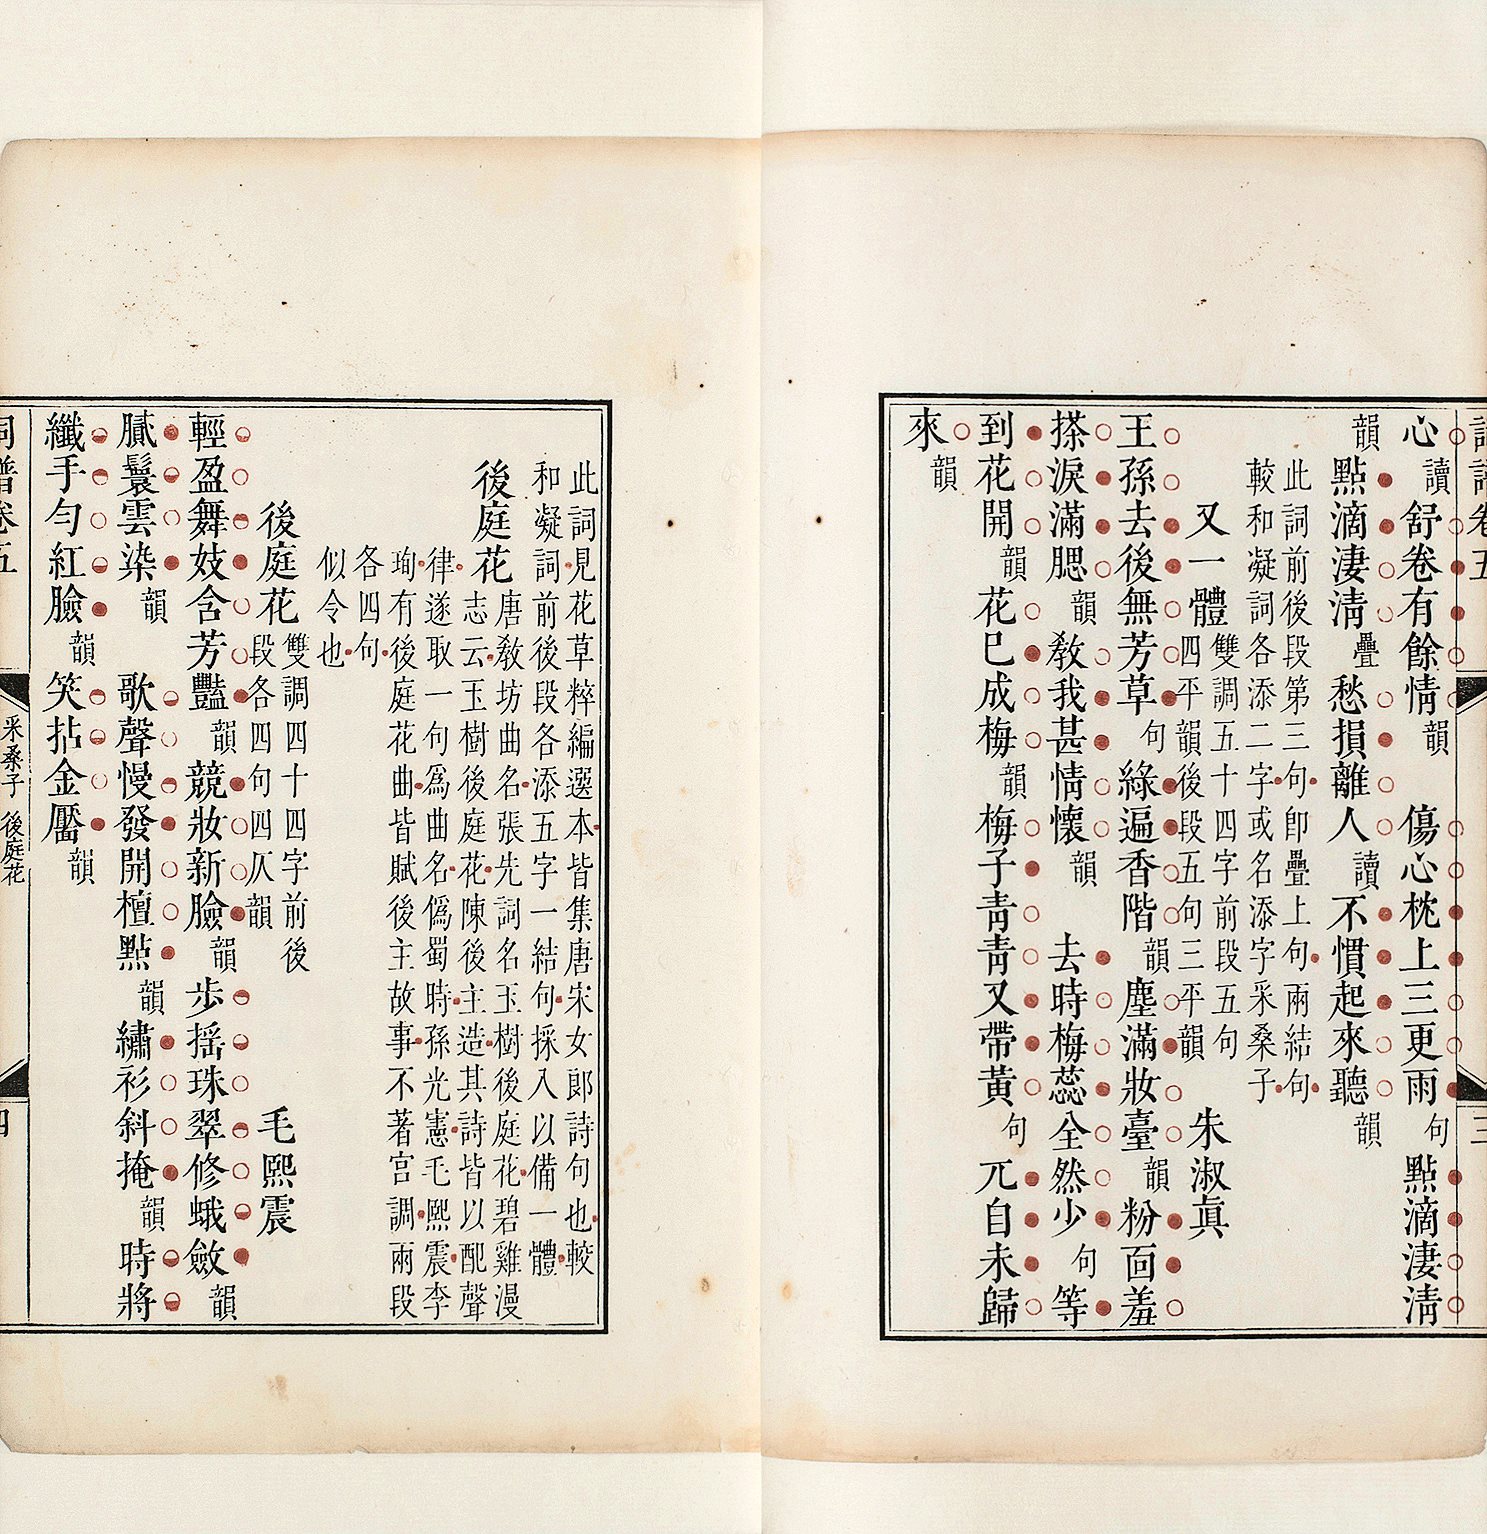 心讀舒卷有餘情韻　傷心枕上三更雨句點滴淒淸
韻點滴淒淸疊愁損離人讀不慣起來聽韻
此詞前後段第三句卽疊上句兩結句
較和凝詞各添二字或名添字采桑子
又一體　雙調五十四字前段五句
四平韻後段五句三平韻　朱淑眞
王孫去後無芳草句綠遍香階韻塵滿妝臺韻粉面羞
搽淚滿腮韻敎我甚情懷韻　去時梅蕊全然少句等
到花開韻花已成梅韻梅子靑靑又帶黃句兀自未歸
來韻
此詞見花草粹編選本皆集唐宋女郎詩句也較
和凝詞前後段各添五字一結句採入以備一體
後庭花　唐敎坊曲名張先詞名玉樹後庭花碧雞漫
志云玉樹後庭花陳後主造其詩皆以配聲
律遂取一句爲曲名僞蜀時孫光憲毛熙震李
珣有後庭花曲皆賦後主故事不著宮調兩段
各四句
似令也
後庭花　雙調四十四字前後
段各四句四仄韻　毛熙震
輕盈舞妓含芳豔韻競妝新臉韻步搖珠翠修蛾斂韻
膩鬟雲染韻　歌聲慢發開檀點韻繡衫斜掩韻時將
纖手勻紅臉韻笑拈金靨韻
采桑子　後庭花